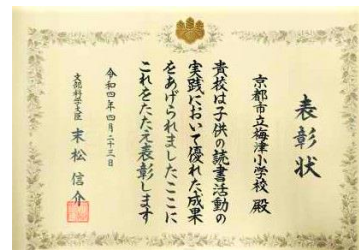 表彰状
京都市立梅津小学校 殿
貴校は子供の読書活動の
実践において優れた成果
をあげられましたここに
これをたたえ表彰します
令和四年四月二十三日
文部科学大臣 末松信介